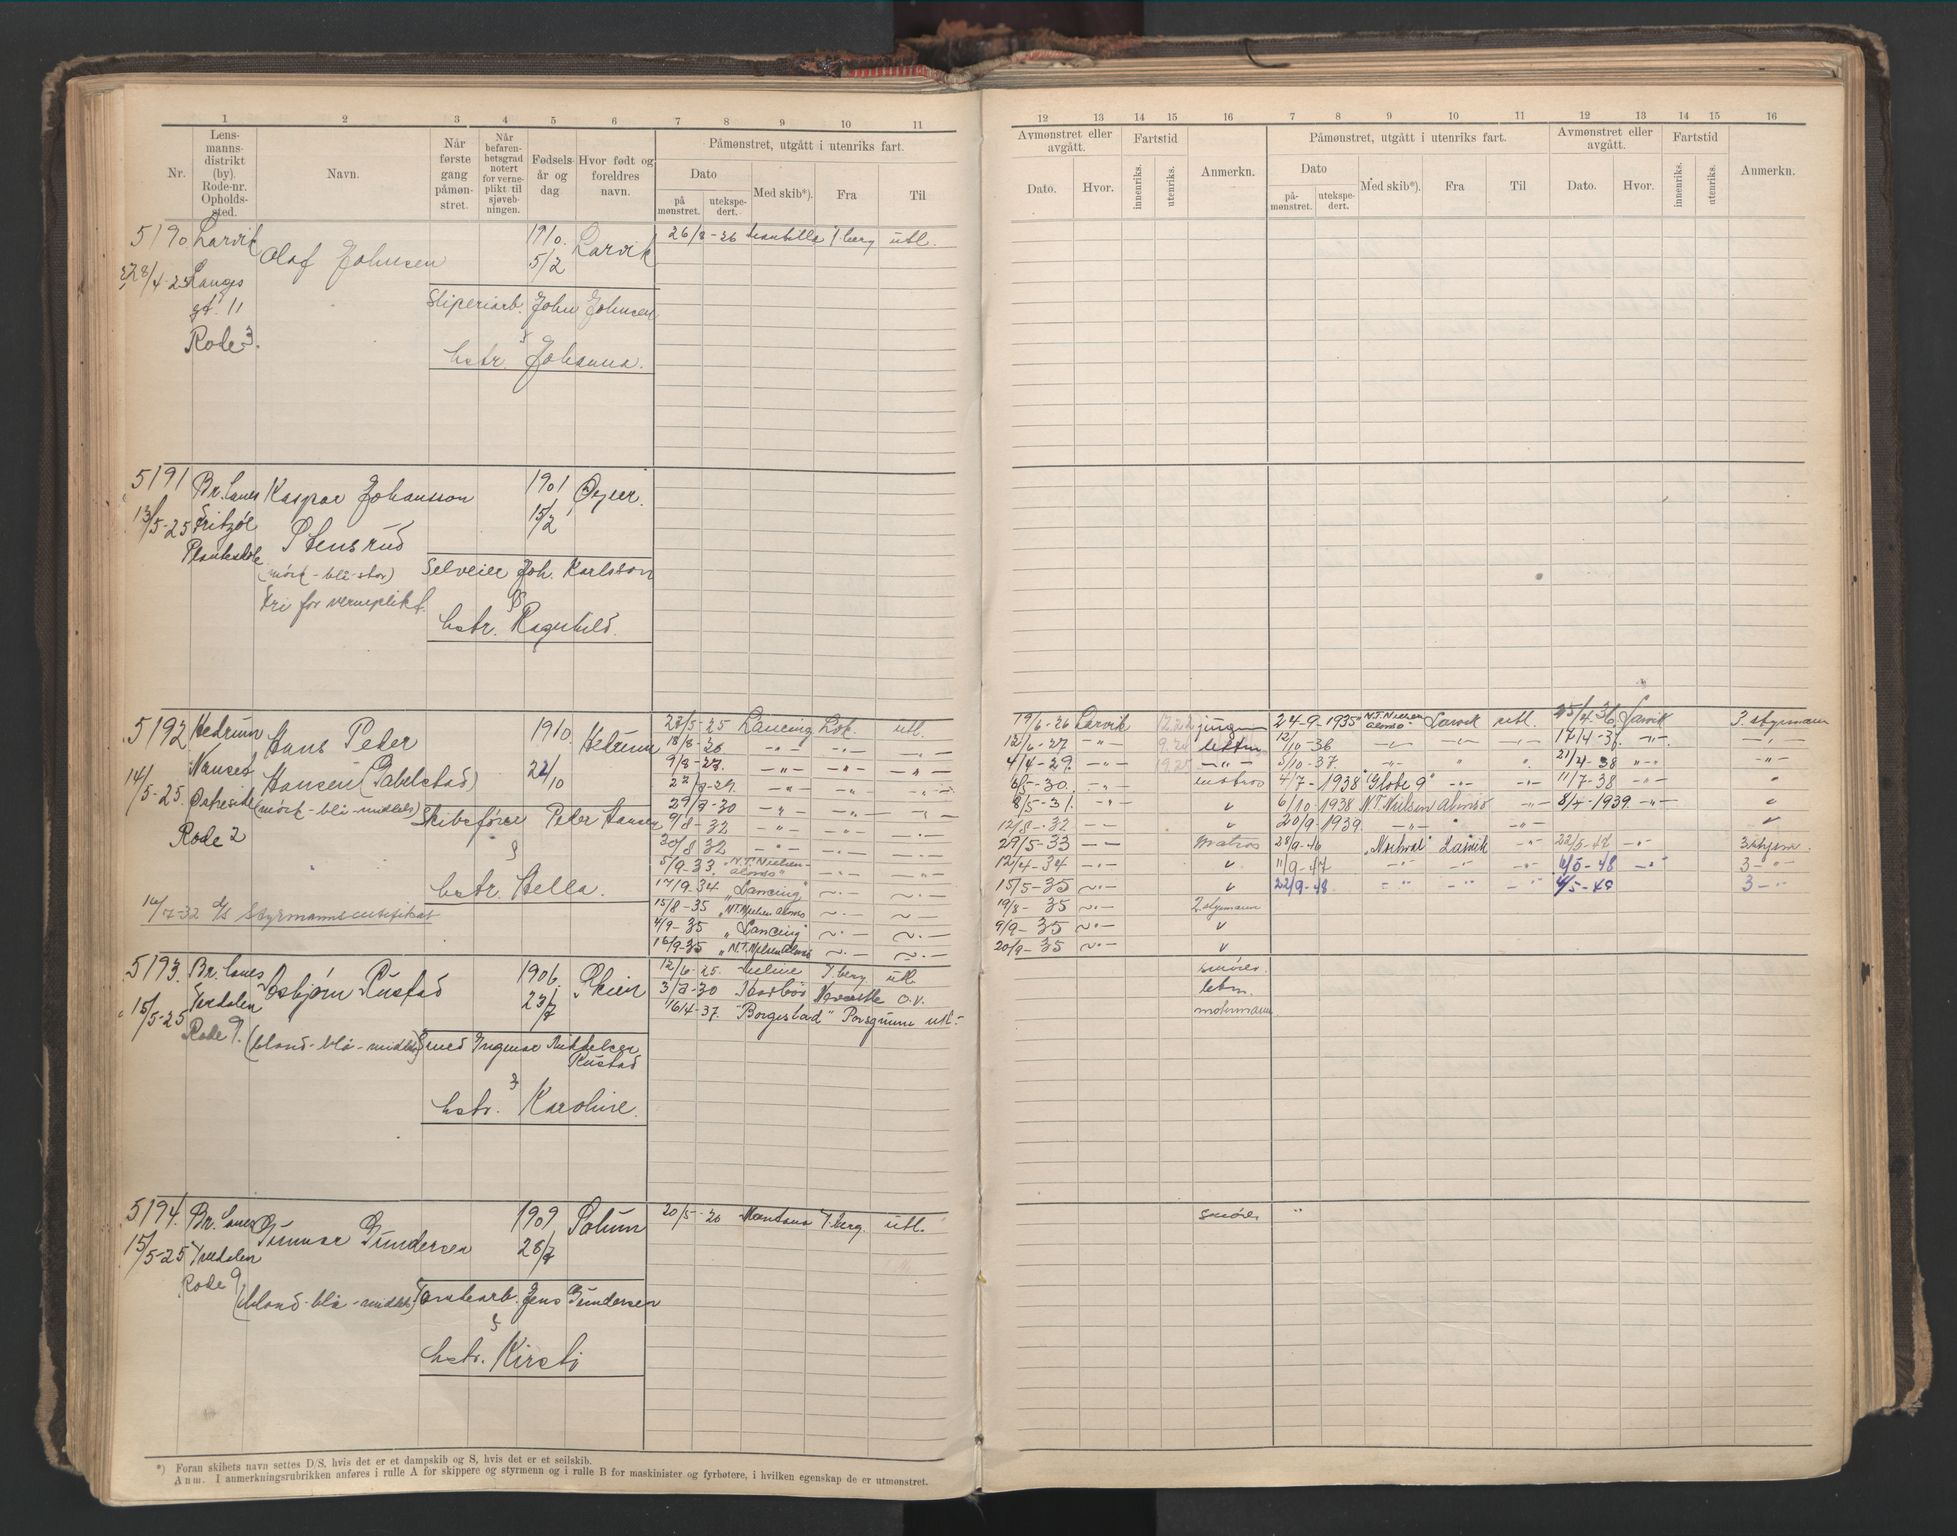 1 2 3 4 5 6 7 8 9 10 11
Nr.
Lens-
manns-
distrikt
(by).
Rode-nr.
Opholds-
sted.
Navn.
Når
første
gang
påmøn-
stret.
Når
befaren-
hetsgrad
notert
for verne-
plikt til
sjøveb-
ningen.
Fødsels
år og
dag
Hvor født og
foreldres
navn.
Påmønstret, utgått i utenriks fart.
Dato
på
mønstret.
utekspe-
dert.
Med skib*).
Fra
Til
5190 Larvik Olaf Johnsen 1910. 5/2 Larvik 26/8-26 T.berg utl.
28/4-25 Langes
gt. 11
Rode 3.
Sliperiarb. John Johnsen
&
hstr. Johanna.
5191 Br.lanes Kaspar Johansson 1901 15/2 Øyer.
13/5-25 Fritzøe Stensrud
Planteskole
(mørk-blå-stor)
Fri for verneplikt.
Selveier Joh. Karlsson
&
hstr. Ragnhild.
5192 Hedrum Hans Peter 1910. 22/10 Hedrum
14/5-25. Nanset Hansen (Gabelstad)
Østreside (mørk-blå-middels)
Rode 2
Skibsfører Peter Hansen
&
hstr. Hella.
16/7-32 Styrmannscertifikat
22/5-25 Lancing Lok. utl.
18/8-26 -"- -"- -"-
9/8-27. -"- -"- -"-
-"- -"- -"-
29/8-30 -"- -"- -"-
9/8-32 -"- -"- -"-
30/8 32 -"- -"- -"-
5/9-33. "N.T. Nielsen-
Alonso" -"- -"-
17/9.34 "Lancing" -"- -"-
15/8-35 "N.T. Nielsen Alonso -"- -"-
4/9-35 "Lancing" -"- -"-
16/9-35 "N.T. Nielsen Alonso -"- -"-
5193. Br.lanes Asbjørn Rustad 1906. 23/7 Skien 12/6-25. T.berg utl.
15/5-25 Rode 9. (blond-blå-middels)
3/8-30 Newcastle o.v.
16/4-37. "Borgestad" Porsgrunn utl.-
Smed Ingvar
Rustad
&
hstr. Karoline.
5194. Br.lanes Gunnar Gundersen 1909 28/7 Solum 20/5-26 Montana T.berg. utl.
15/5-25
Rode 9. (blond-blå-middels)
Tomtearb. Jens Gundersen
&
hstr. Kirsti
*) Foran skibets navn settes D/S, hvis det er et dampskib og S, hvis det er et seilskib.
Anm. I anmerkningsrubrikken anføres i rulle A for skippere og styrmenn og i rulle B for maskinister og fyrbøtere, i hvilken egenskap de er utmønstret.
12 13 14 15 16 7 8 9 10 11 12 13 14 15 16
Avmønstret eller
avgått.
Dato. Hvor.
Fartstid
innenriks. utenriks.
Anmerkn.
Påmønstret, utgått i utenriks fart.
Dato
på-
mønstret.
utekspe-
dert.
Med skib*).
Fra
Til
Avmønstret eller
avgått.
Dato. Hvor.
Fartstid
innenriks. utenriks.
Anmerkn.
19/6-26 Larvik jungm 24-9-1935 "N.T. Nielsen Alonso" Larvik utl. 25/4.36. Larvik 3. styrmann
12/6-27 -"- lettm 12/10-36 -"- -"- -"- 17/4-37. -"- -"-
4/4-29. -"- -"- 5/10-37. -"- " " 21/4-38 -"- -"-
6/5-30. -"- matros 4/7-1938 "Globe 9" -"- -"- 11/7-38 -"- "
8/5-31. -"- " 6/10 1938 N.T. Nielsen Alonso -"- 8/4-1939. -"- "
12/8-32 - " 20/9-1939. -"- -"-
29/5-33 -"- matros 28/9-46 "Norhval" Larvik -"- 22/5-47 -"- 3 styrm.
12/4-34 -"- 11/9-47 -"- -"- -"- 6/5-48 -"- 3 -"-
15/5-35 -"- " 22/9-48 -"- -"- -"- 4/5-49 3 -"-
19/8-35 -"- 2. styrmann
9/9-35 -"- "
20/9-35 -"- "
smører
letm.
motormann
smører "